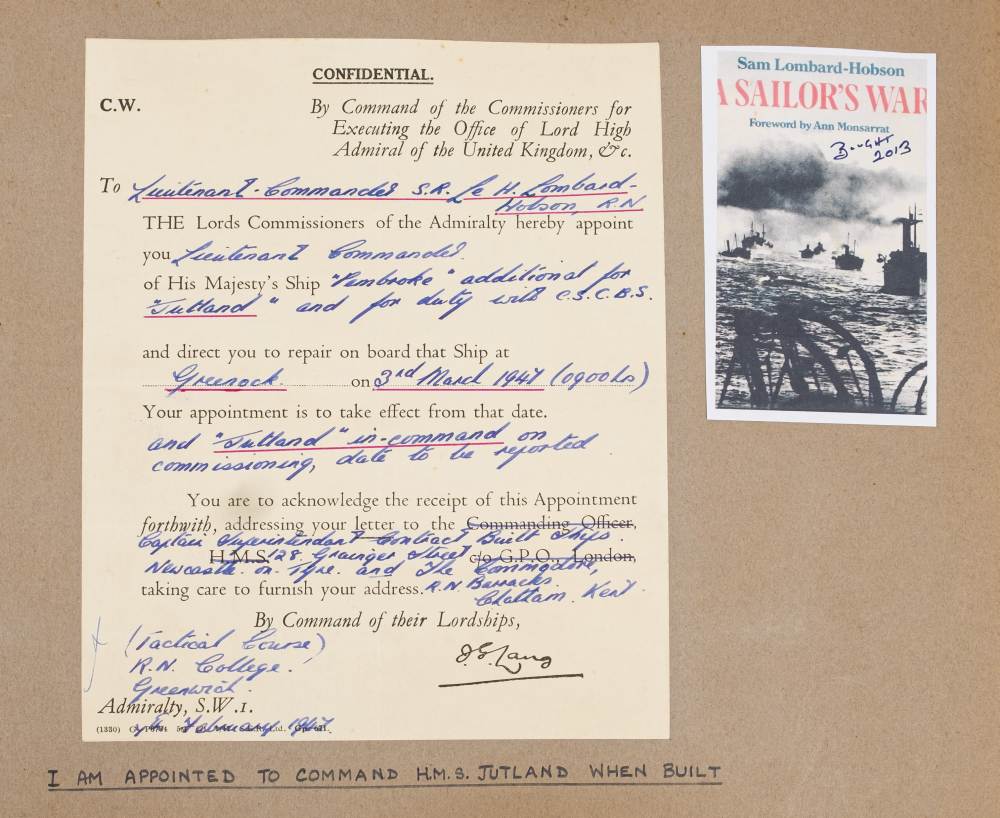 CONFIDENTIAL.
C.W.
By Command of the Commissioners for
Executing the Office of Lord High
Admiral of the United Kingdom, &c.
To Lieutenant-Commander S.R. Le H. Lombard-
Hobson, R.N
THE Lords Commissioners of the Admiralty hereby appoint
you Lieutenant Commander.
of His Majesty's Ship "Pembroke" additional for
"Jutland" and for duty with C.S.C.B.S.
and direct you to repair on board that Ship at
Greenock. on 3rd March 1947 (0900 hrs)
Your appointment is to take effect from that date.
and "Jutland" in-command on
commissioning, date to be reported
You are to acknowledge the receipt of this Appointment
forthwith, addressing your letter to the Commanding Officer,
Captain Superintendent Contract Built Ships.
H.M.S. 128 Grainger Street c/o G.P.O., London,
Newcastle. on. Tyne. and The Commodore,
taking care to furnish your address. R.N. Barracks.
Chatham. Kent.
By Command of their Lordships,
(Tactical Course)
R.N. College.
Greenwich.
J.G. Lang
Admiralty, S.W.1.
(1330)
February 1947.
Sam Lombard-Hobson
A SAILOR'S WAR
Foreword by Ann Monsarrat
BOUGHT
2013
I AM APPOINTED TO COMMAND H.M.S. JUTLAND WHEN BUILT